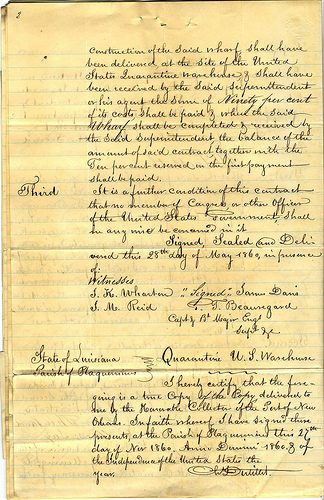 2
Construction of the Said wharf, Shall have
been delivered at the Site of the United
States Quarantine Warehouse & Shall have
been received by the Said Superintendent
or his agent the Sum of Ninety per cent
of its costs Shall be paid & when the Said
Wharf Shall be Completed & received by
the Said Superintendent the balance of the
amount of said contract together with the
Ten per cent reserved on the first payment
shall be paid.
Third It is a further Condition of this contract
that no member of Congress or other Officer
of the United States Government, Shall
in any wise be concerned in it
Signed, Sealed and Deli-
vered this 28th day of May 1860, in presence
of.
Witnesses
T. K. Wharton "Signed" James Davis
J. M. Reid G. T. Beauregard
Capt & Bt Major Engs
Supt &c
State of Louisiana Quarantine U. S. Warehouse
Parish of Plaquemines
I hereby certify that the fore-
going is a true Copy of the Copy delivered to
me by the Honorable Collector of the Port of New
Orleans. In faith whereof I have signed these
presents, at the Parish of Plaquemines this 27th
day of Nov 1860. Anno Domini 1860. & of
the Independence of the United States the
year.